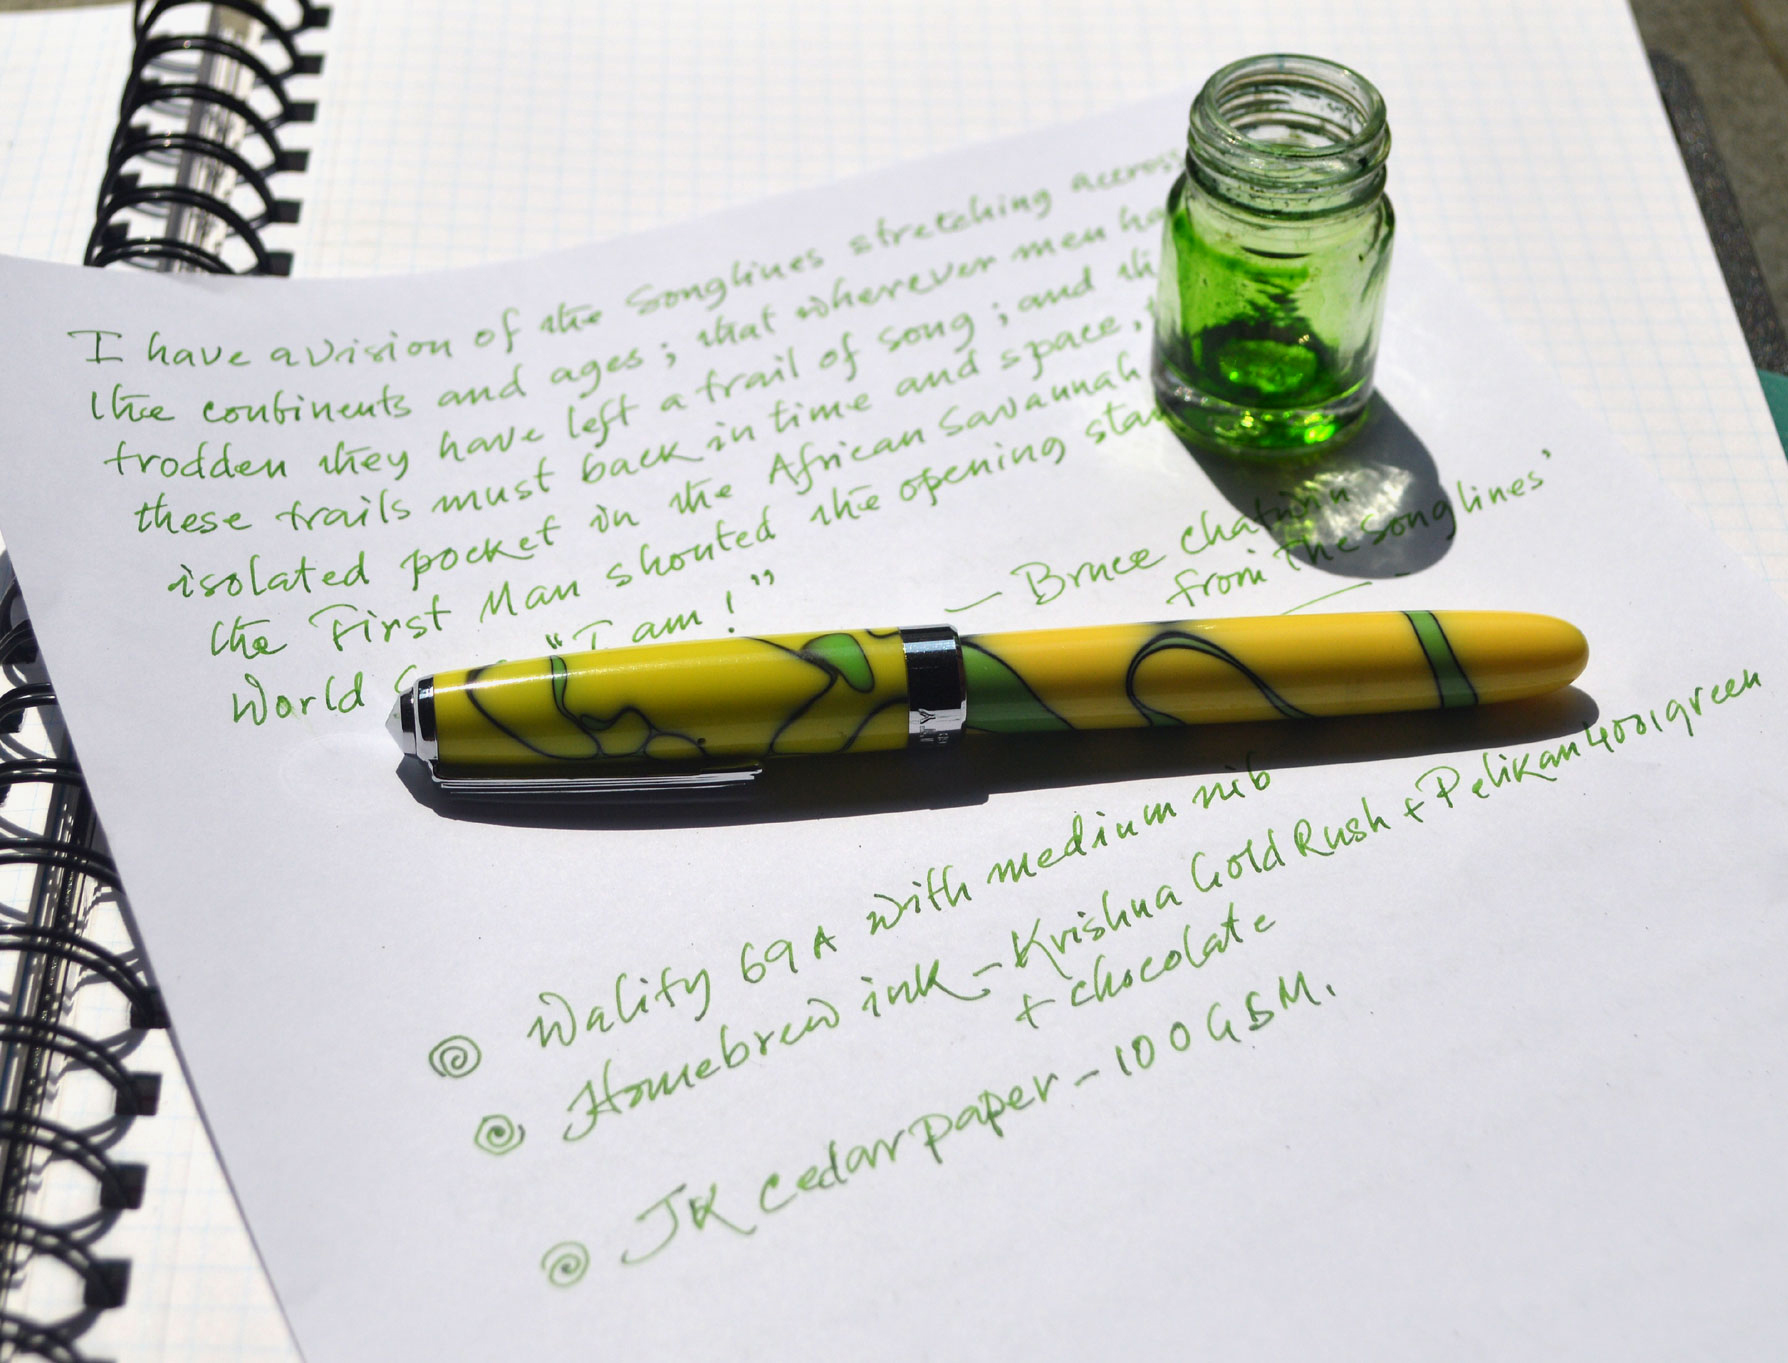 I have a vision of the Songlines stretching accross
the continents and ages; that wherever men ha
trodden they have left a trail of song; and th
these trails must back in time and space,
isolated pocket in the African Savannah
the First Man shouted the opening stan
World "I am!"
— Bruce Chatwin
from 'The Songlines'
Wality 69A with medium nib
Homebrew ink – Krishna Gold Rush + Pelikan 4001 green
+ chocolate
JK Cedar paper – 100 GSM.